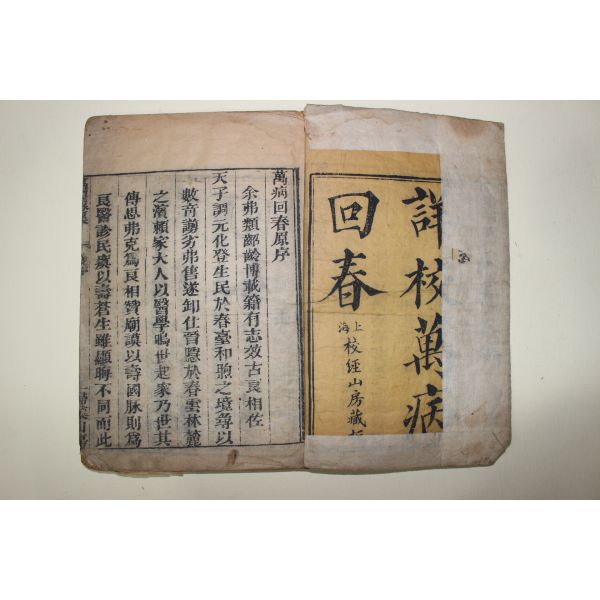 詳校萬病
回春
上海校經山房藏
萬病回春原序
余弗類髫齡博載籍有志效古良相佐
天子調元化登生民於春臺和煦之境尋以
數奇謭劣弗售遂卸仕晉隱於春雲林麓
之濱賴家大人以醫學鳴世起家乃世其
傳思弗克為良相贊廟謨以壽國脉則為
良醫診民瘼以壽蒼生雖顯晦不同而此